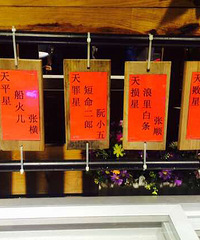 天平星
船火儿
张横
天罪星
短命二郎
阮小五
天损星
浪里白条
张顺
天败星